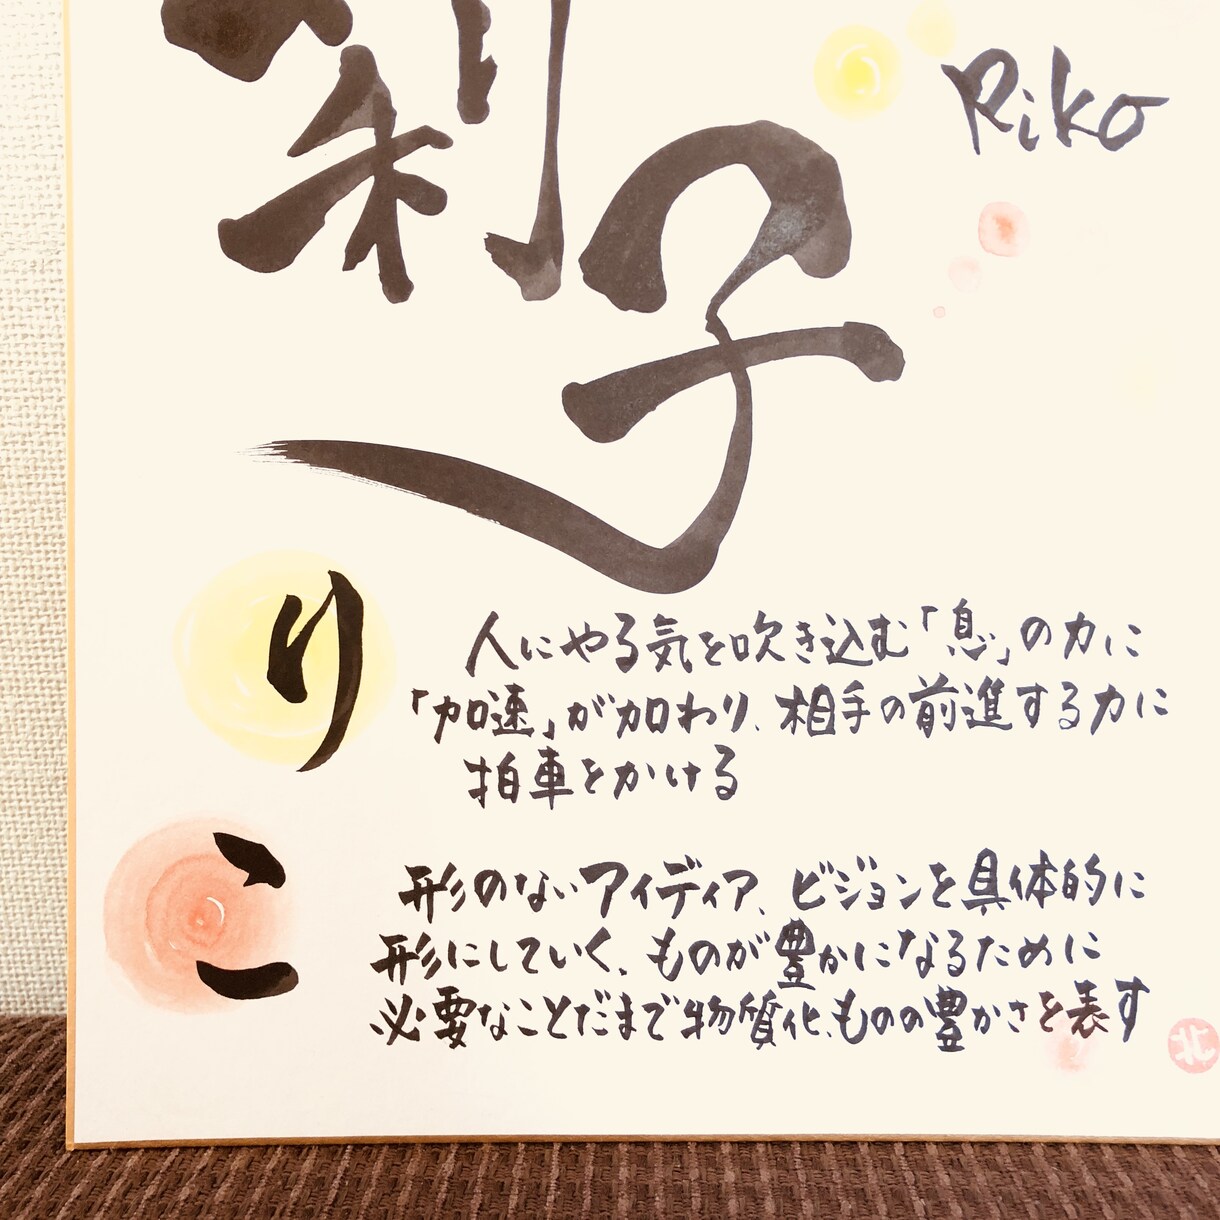 利子
Riko
り
人にやる気を吹き込む「息」の力に
「加速」が加わり、相手の前進する力に
拍車をかける
こ
形のないアイディア、ビジョンを具体的に
形にしていく、ものが豊かになるために
必要なことだまで物質化、ものの豊かさを表す
北